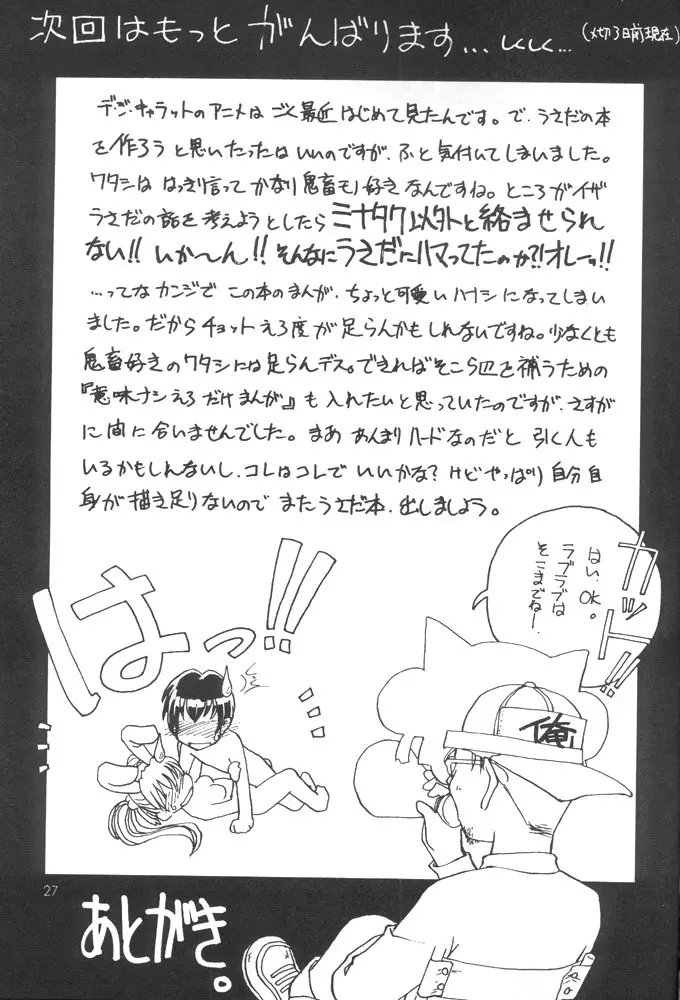 次回はもっとがんばります…しくしく…
(〆切3日前現在)
デ・ジ・キャラットのアニメはごく最近はじめて見たんです。で、うさだの本
を作ろうと思いたったはいいのですが、ふと気付いてしまいました。
ワタシははっきり言ってかなり鬼畜モノ好きなんですね。ところがイザ
うさだの話を考えようとしたらミナタク以外と絡ませられ
ない!!いか〜ん!!そんなにうさだにハマってたのか?!オレーっ!!
…ってなカンジでこの本のまんが、ちょっと可愛いハナシになってしまい
ました。だからチョットえろ度が足らんかもしれないですね。少なくとも
鬼畜好きのワタシには足らんデス。できればそこら辺を補うための
『意味ナシえろだけまんが』も入れたいと思っていたのですが、さすが
に間に合いませんでした。まああんまりハードなのだと引く人も
いるかもしんないし、コレはコレでいいかな?けどやっぱり自分自
身が描き足りないのでまたうさだ本、出しましょう。
カット!!
はい、OK。
ラブラブは
そこまでねー。
はっ!!
俺
27
あとがき。